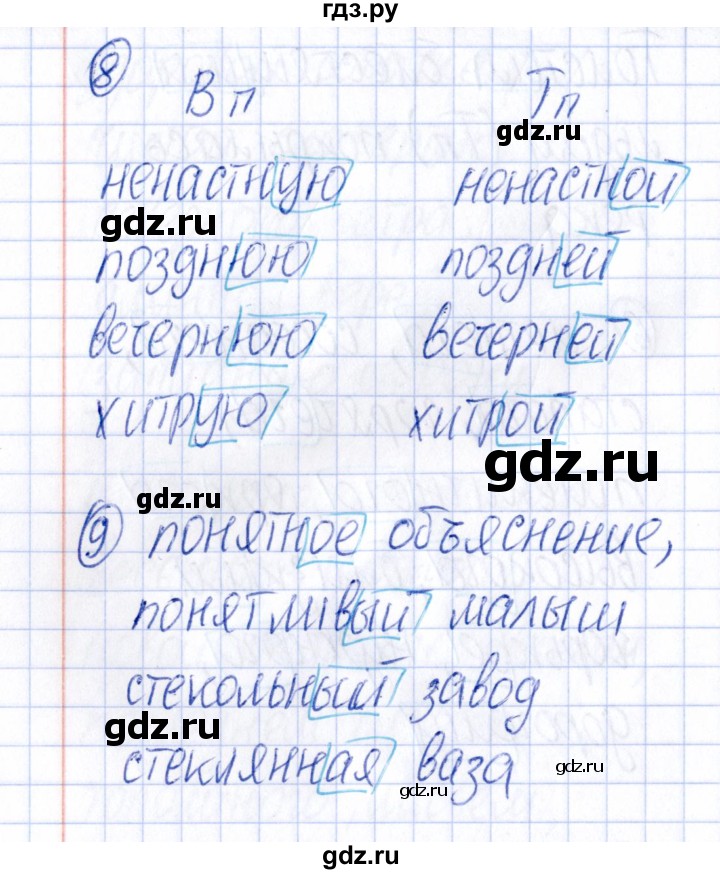 гдз.ру
8
В п Т п
gdz.ru
ненастную ненастной
gdz.ru
позднюю поздней
gdz.ru
вечернюю вечерней
хитрую хитрой
gdz.ru
gdz.ru
9 понятное объяснение,
понятливый малыш
стекольный завод
gdz.ru
стеклянная ваза
gdz.ru
gdz.ru
gdz.ru